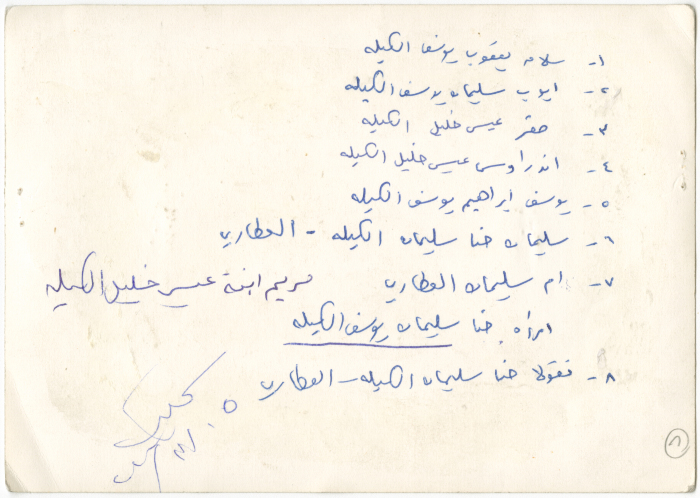 ١- سلامه يعقوب يوسف الكيله
٢- ايوب سليمان يوسف الكيله
٣- صقر عيسى خليل الكيله
٤- اندراوس عيسى خليل الكيله
٥- يوسف ابراهيم يوسف الكيله
٦- سليمان حنا سليمان الكيله - العطارين
٧- ام سليمان العطارين مريم ابنة عيسى خليل الكيله
امرأة حنا سليمان يوسف الكيله
٨- نقولا حنا سليمان الكيله - العطارين